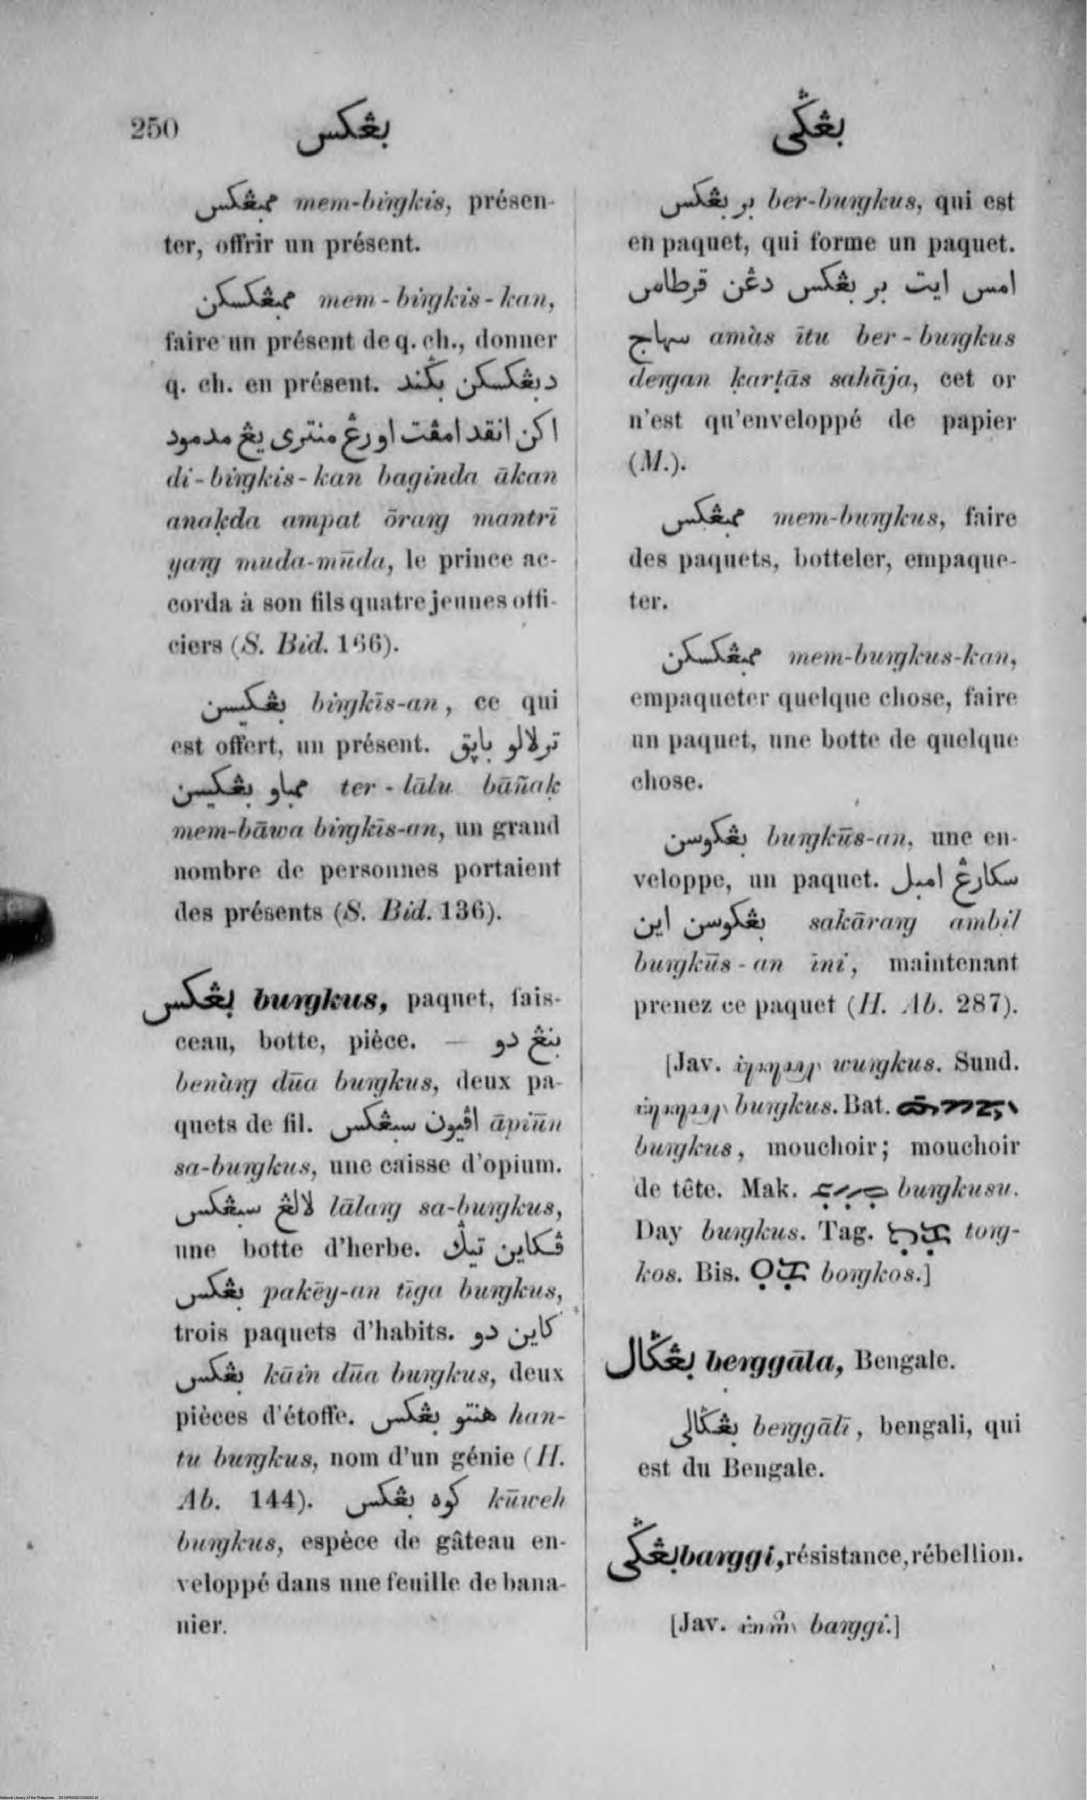 250 بڠكس بڠݢي
ممبڠكس mem-biŋkis, présen-
ter, offrir un présent.
ممبڠكسكن mem-biŋkis-kan,
faire un présent de q. ch., donner
q. ch. en présent. دبڠكسكن بݢند
اكن انقد امڤت اورڠ منتري يڠ مدمود
di-biŋkis-kan baginda ākan
anaḳda ampat ōraŋ mantrī
yaŋ muda-mūda, le prince ac-
corda à son fils quatre jeunes offi-
ciers (S. Bid. 166).
بڠكيسن biŋkīs-an, ce qui
est offert, un présent. ترلالو باڽق
ممباو بڠكيسن ter-lālu bāñaḳ
mem-bāwa biŋkīs-an, un grand
nombre de personnes portaient
des présents (S. Bid. 136).
بڠكس buŋkus, paquet, fais-
ceau, botte, pièce. — بنڠ دو
benàŋ dūa buŋkus, deux pa-
quets de fil. اڤيون سبڠكس āpiūn
sa-buŋkus, une caisse d'opium.
لالڠ سبڠكس lālaŋ sa-buŋkus,
une botte d'herbe. ڤكاين تيݢ
بڠكس pakēy-an tīga buŋkus,
trois paquets d'habits. كاين دو
بڠكس kāin dūa buŋkus, deux
pièces d'étoffe. هنتو بڠكس han-
tu buŋkus, nom d'un génie (H.
Ab. 144). كوه بڠكس kūweh
buŋkus, espèce de gâteau en-
veloppé dans une feuille de bana-
nier.
بر بڠكس ber-buŋkus, qui est
en paquet, qui forme un paquet.
امس ايت بر بڠكس دڠن قرطاس
سهاج amàs ītu ber-buŋkus
deŋan ḳarṭās sahāja, cet or
n'est qu'enveloppé de papier
(M.).
ممبڠكس mem-buŋkus, faire
des paquets, botteler, empaque-
ter.
ممبڠكسكن mem-buŋkus-kan,
empaqueter quelque chose, faire
un paquet, une botte de quelque
chose.
بڠكوسن buŋkūs-an, une en-
veloppe, un paquet. سكارڠ امبل
بڠكوسن اين sakāraŋ ambil
buŋkūs-an ini, maintenant
prenez ce paquet (H. Ab. 287).
[Jav. wuŋkus. Sund.
buŋkus. Bat.
buŋkus, mouchoir; mouchoir
de tête. Mak. buŋkusu.
Day buŋkus. Tag. toŋ-
kos. Bis. boŋkos.]
بڠݢال beŋgāla, Bengale.
بڠݢالي beŋgālī, bengali, qui
est du Bengale.
بڠݢي baŋgi, résistance, rébellion.
[Jav. baŋgi.]